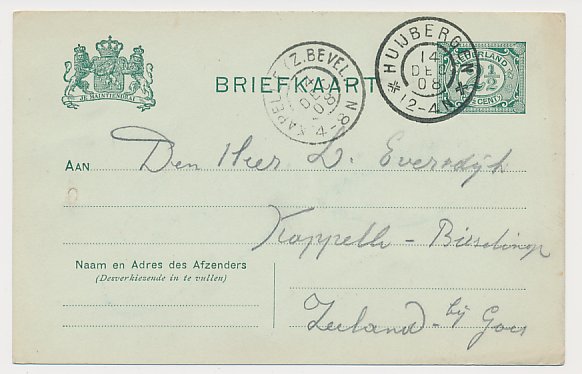 JE MAINTIENDRAI
BRIEFKAART
KAPELLE (Z. BEVEL.)
DEC
08
4-8 N
HUIJBERGEN
14
DEC
08
12-4 N
NEDERLAND
2½
CENT
AAN Den Heer L. Eversdijk
Kappelle - Bieselinge
Naam en Adres des Afzenders
(Desverkiezende in te vullen)
Zeeland - bij Goes